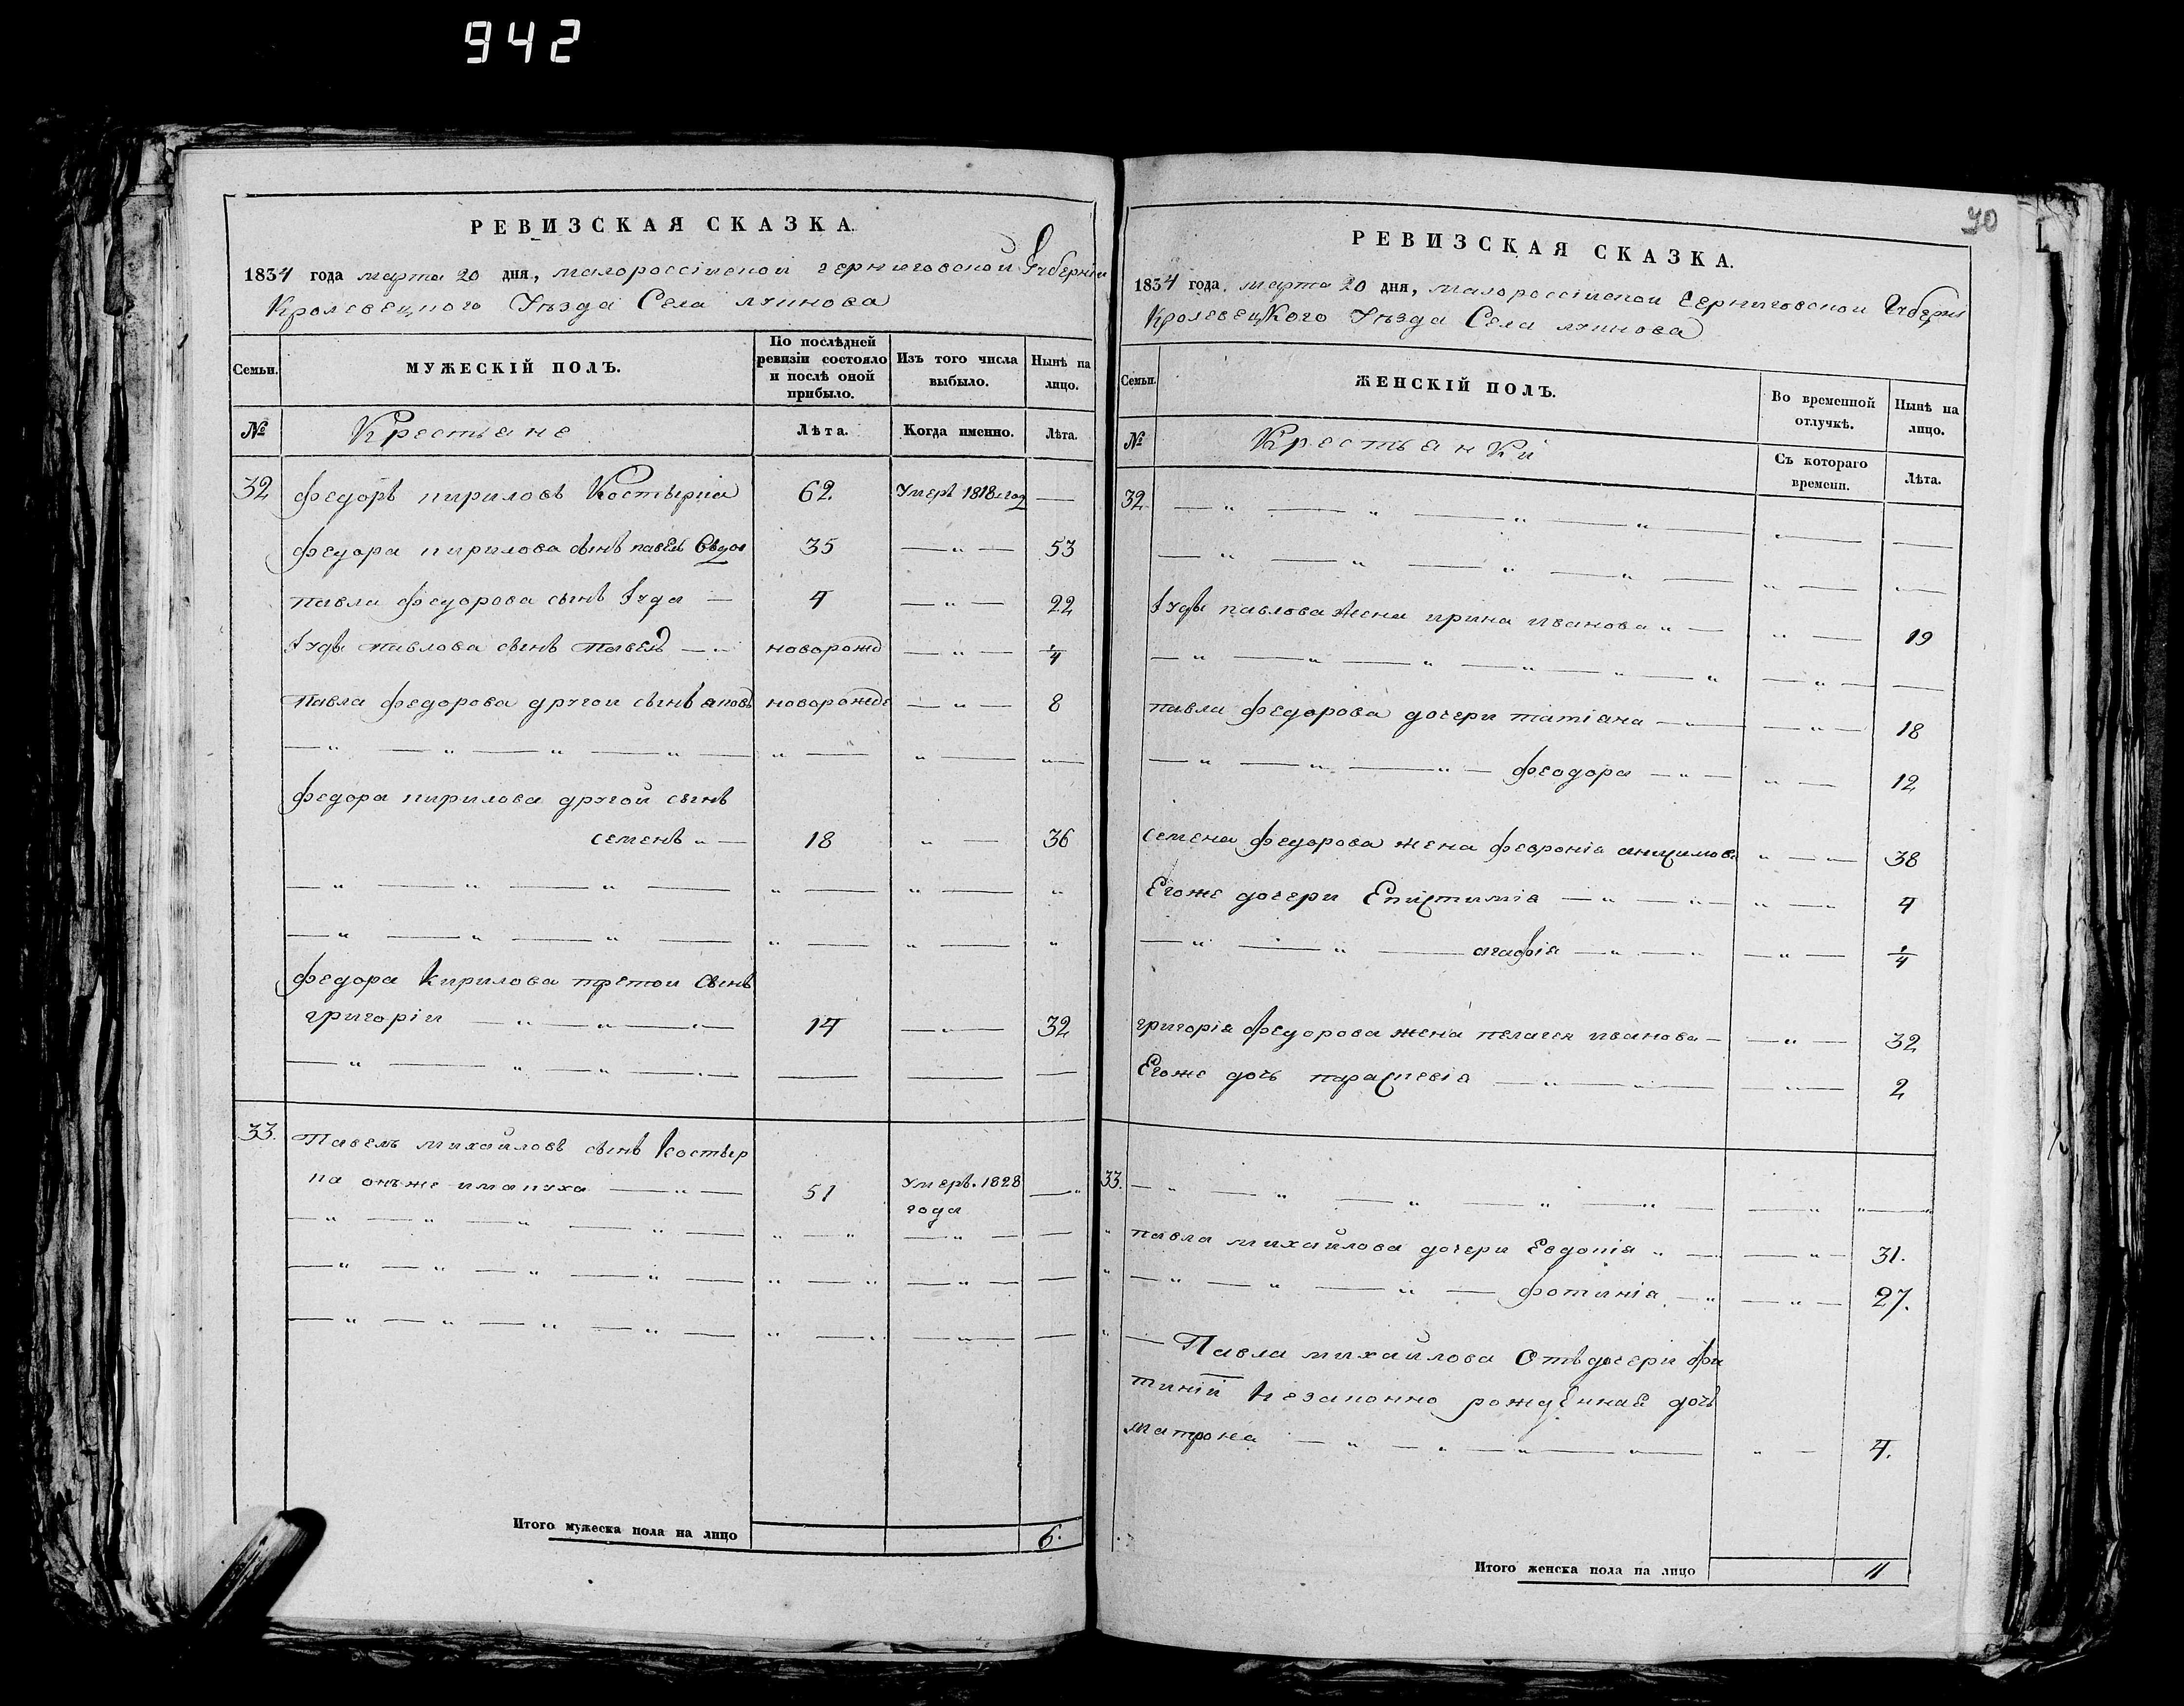 942
РЕВИЗСКАЯ СКАЗКА.
1834 года марта 20 дня, малороссійской черниговской Губерніи
Кролевецкого Уѣзда Села
Семьи.
МУЖЕСКІЙ ПОЛЪ.
По послѣдней ревизіи состояло и послѣ оной прибыло.
Изъ того числа выбыло.
Нынѣ на лицо.
№
Крестьяне
Лѣта.
Когда именно.
Лѣта.
32 федоръ кириловъ 62. Умеръ 1818 год —
федора кирилова сынъ павелъ 35 — „ — 53
павла федорова сынъ Іуда — 4 — „ — 22
Іуды павлова сынъ павелъ — новорожд — „ — 1/4
павла федорова другой сынъ новорожде — „ — 8
федора кирилова другой сынъ
семенъ „ — 18 „ — 36
федора кирилова третой сынъ
григорій — „ — „ — „ — 14 — „ — 32
33. Павелъ михайловъ сынъ Костыр
ка онъже 51 умеръ. 1828 года — „
Итого мужеска пола на лицо 6.
70
РЕВИЗСКАЯ СКАЗКА.
1834 года. марта 20 дня, малороссійской Черниговской Губерні
Кролевецкого Уѣзда Села
Семьи.
ЖЕНСКІЙ ПОЛЪ.
Во временной отлучкѣ.
Нынѣ на лицо.
№
Крестьянки
Съ котораго времени.
Лѣта.
32
Іуды павлова жена ирина иванова „ — „ — 19
павла федорова дочери татіана — „ — — „ — 18
— „ — „ — „ — феодора — „ — „ — 12
семена федорова жена февронія „ — „ — 38
Егоже дочери Епистимія — „ — „ — „ — „ 4
— „ — „ — агафія — „ — „ — „ — 1/4
григорія федорова жена пелагея иванова — — „ — 32
Егоже дочь параскевія — „ — „ — „ — 2
33.
павла михайлова дочери Евдокія „ — — „ — 31.
— „ — „ — „ — фотинія — „ — „ — 27.
— Павла михайлова Отъ дочери фо
тиніи незаконно рожденная дочь
матрона — „ — „ — „ — „ — „ — 4.
Итого женска пола на лицо 11